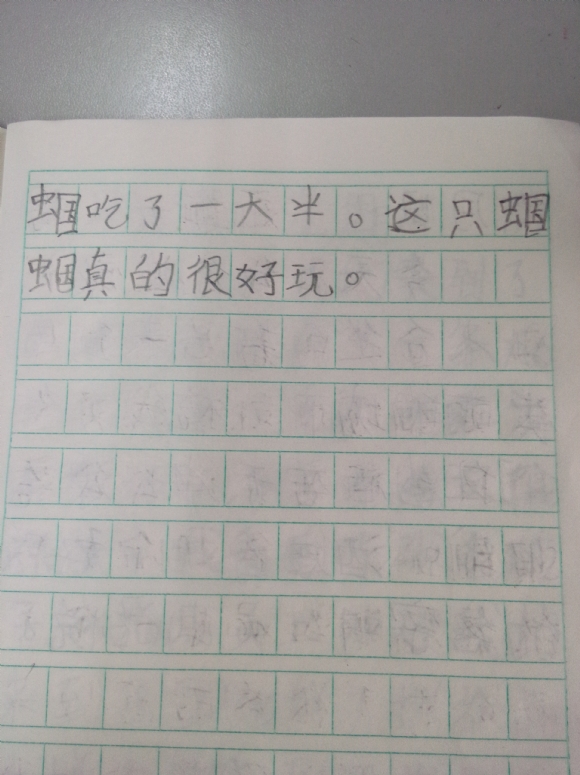 蝈吃了一大半。这只蝈
蝈真的很好玩。